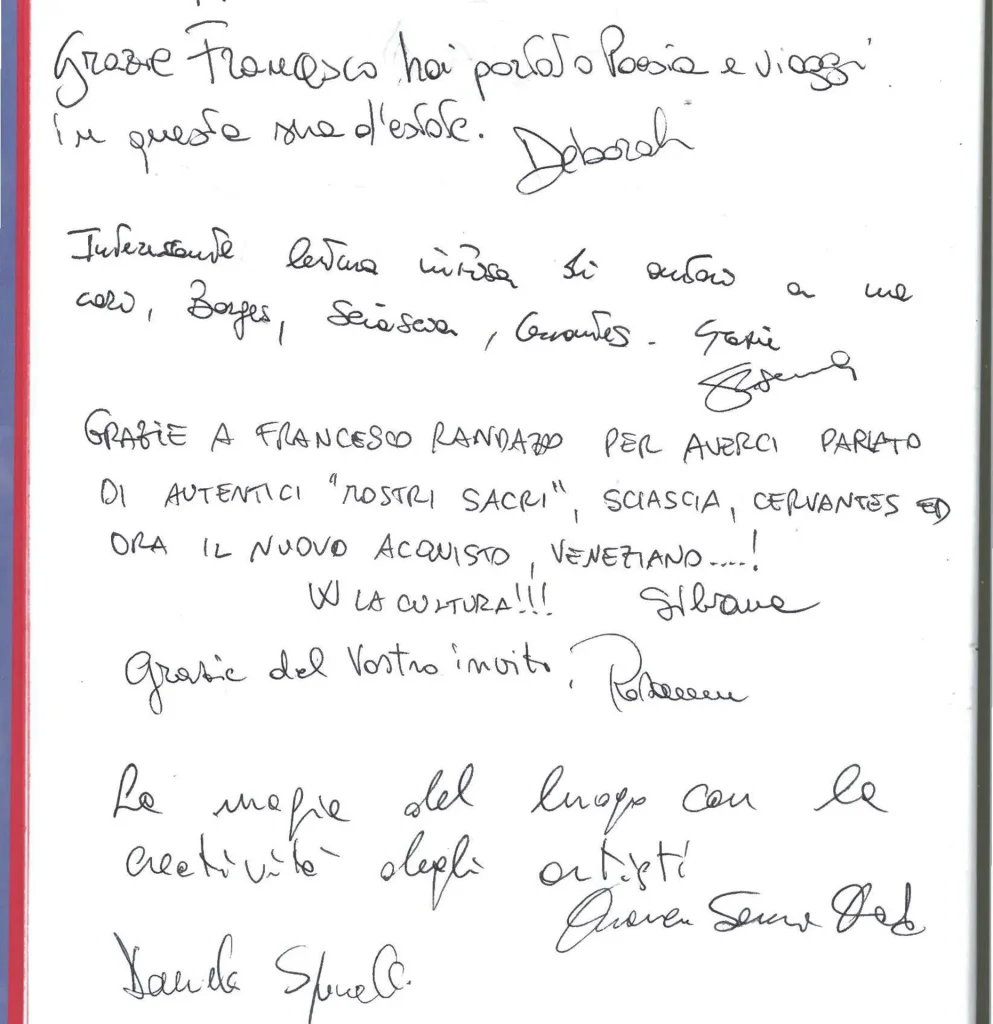 Grazie Francesco hai portato Poesia e viaggi
in questa sera d'estate. Deborah
Interessante lettura intrisa di autori a me
cari, Borges, Sciascia, Cervantes. Grazie
GRAZIE A FRANCESCO RANDAZZO PER AVERCI PARLATO
DI AUTENTICI "MOSTRI SACRI", SCIASCIA, CERVANTES ED
ORA IL NUOVO ACQUISTO, VENEZIANO....!
W LA CULTURA!!! Silvana
Grazie del Vostro invito,
La magia del luogo con la
creatività degli artisti
Daniela